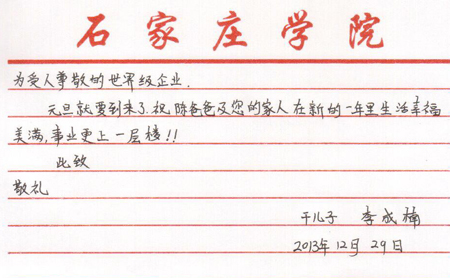 石家庄学院
为受人尊敬的世界级企业.
元旦就要到来了.祝陈爸爸及您的家人在新的一年里生活幸福
美满,事业更上一层楼!!
此致
敬礼
干儿子 李成楠
2013年12月29日